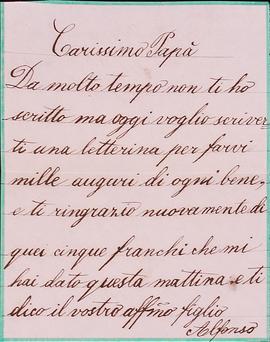 Carissimo Papà
Da molto tempo non ti ho
scritto ma oggi voglio scriver-
ti una letterina per farvi
mille auguri di ogni bene,
e ti ringrazio nuovamente di
quei cinque franchi che mi
hai dato questa mattina e ti
dico il vostro affmo figlio
Alfonso